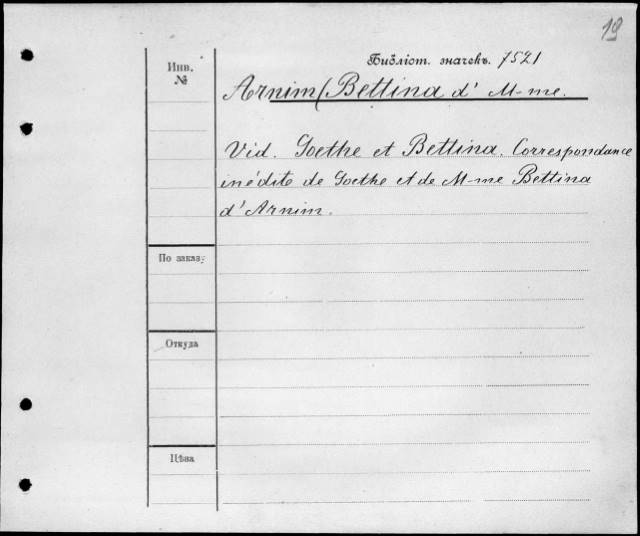 19
Библіот. значекъ. 7521
Инв.
№
Arnim (Bettina d' M-me.
Vid. Goethe et Bettina. Correspondance
inédite de Goethe et de M-me Bettina
d'Arnim.
По заказу
Откуда
Цѣна